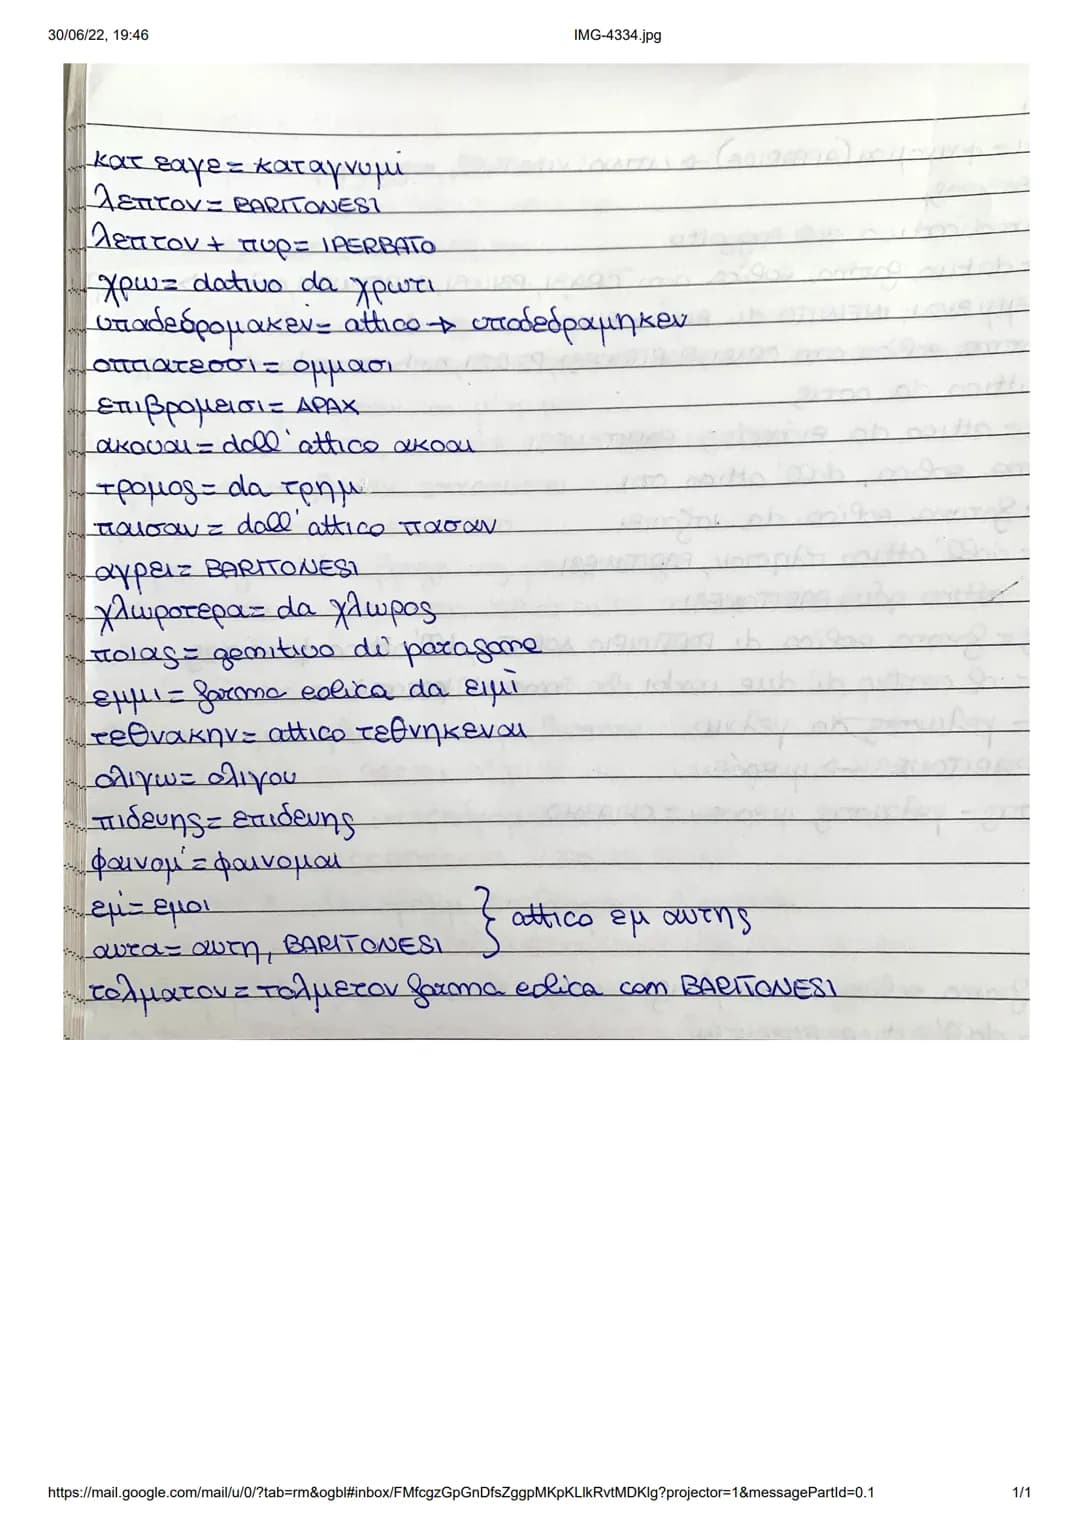 30/06/22, 19:46 IMG-4334.jpg
κατ εαγε = καταγνυμι
λεπτον = BARITONESI
λεπτον + πυρ = IPERBATO
χρω = dativo da χρωτι
υπαδεδρομακεν = attico → υποδεδραμηκεν
οππατεσσι = ομμασι
επιβρομεισι = APAX
ακουαι = dall'attico ακοαι
τρομος = da τρημ
παισαν = dall'attico πασαν
αγρει = BARITONESI
χλωροτερα = da χλωρος
ποιας = genitivo di paragone
εμμι = forma eolica da ειμι
τεθνακην = attico τεθνηκεναι
ολιγω = ολιγου
πιδευης = επιδευης
φαινομ' = φαινομαι
εμ = εμοι
αυτα = αυτη, BARITONESI } attico εμ αυτης
τολματον = τολμετον forma eolica con BARITONESI
https://mail.google.com/mail/u/0/?tab=rm&ogbl#inbox/FMfcgzGpGnDfsZggpMKpKLlkRvtMDKlg?projector=1&messagePartId=0.1 1/1